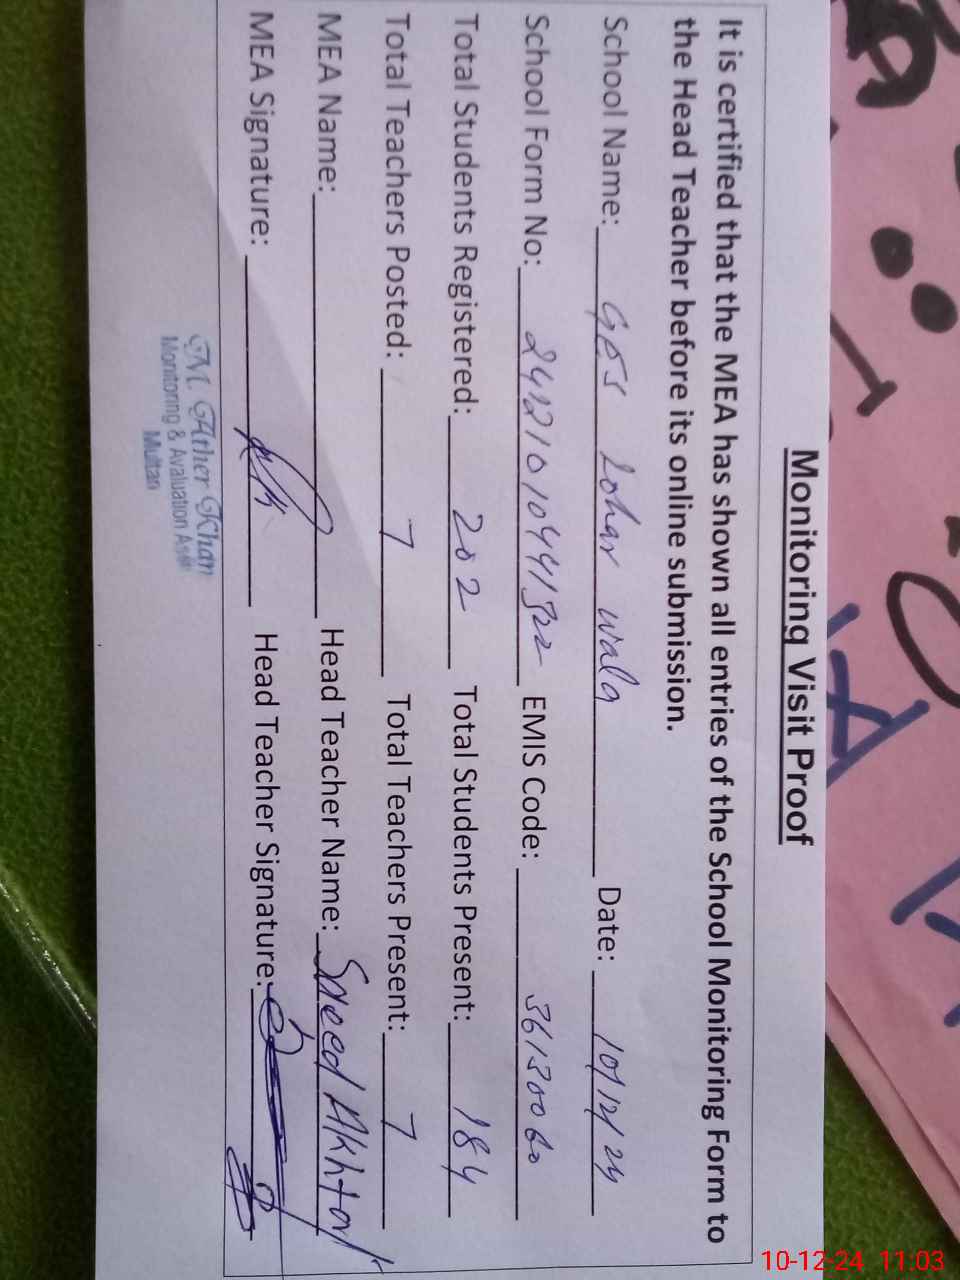 Monitoring Visit Proof
It is certified that the MEA has shown all entries of the School Monitoring Form to
the Head Teacher before its online submission.
School Name: GES Lohar wala Date: 10/12/24
School Form No: EMIS Code: 36130060
Total Students Registered: 202 Total Students Present: 184
Total Teachers Posted: 7 Total Teachers Present: 7
MEA Name: Head Teacher Name: Saeed Akhtar
MEA Signature: Head Teacher Signature:
M. Ather Khan
Monitoring & Avaluation Asstt
Multan
10-12-24 11:03